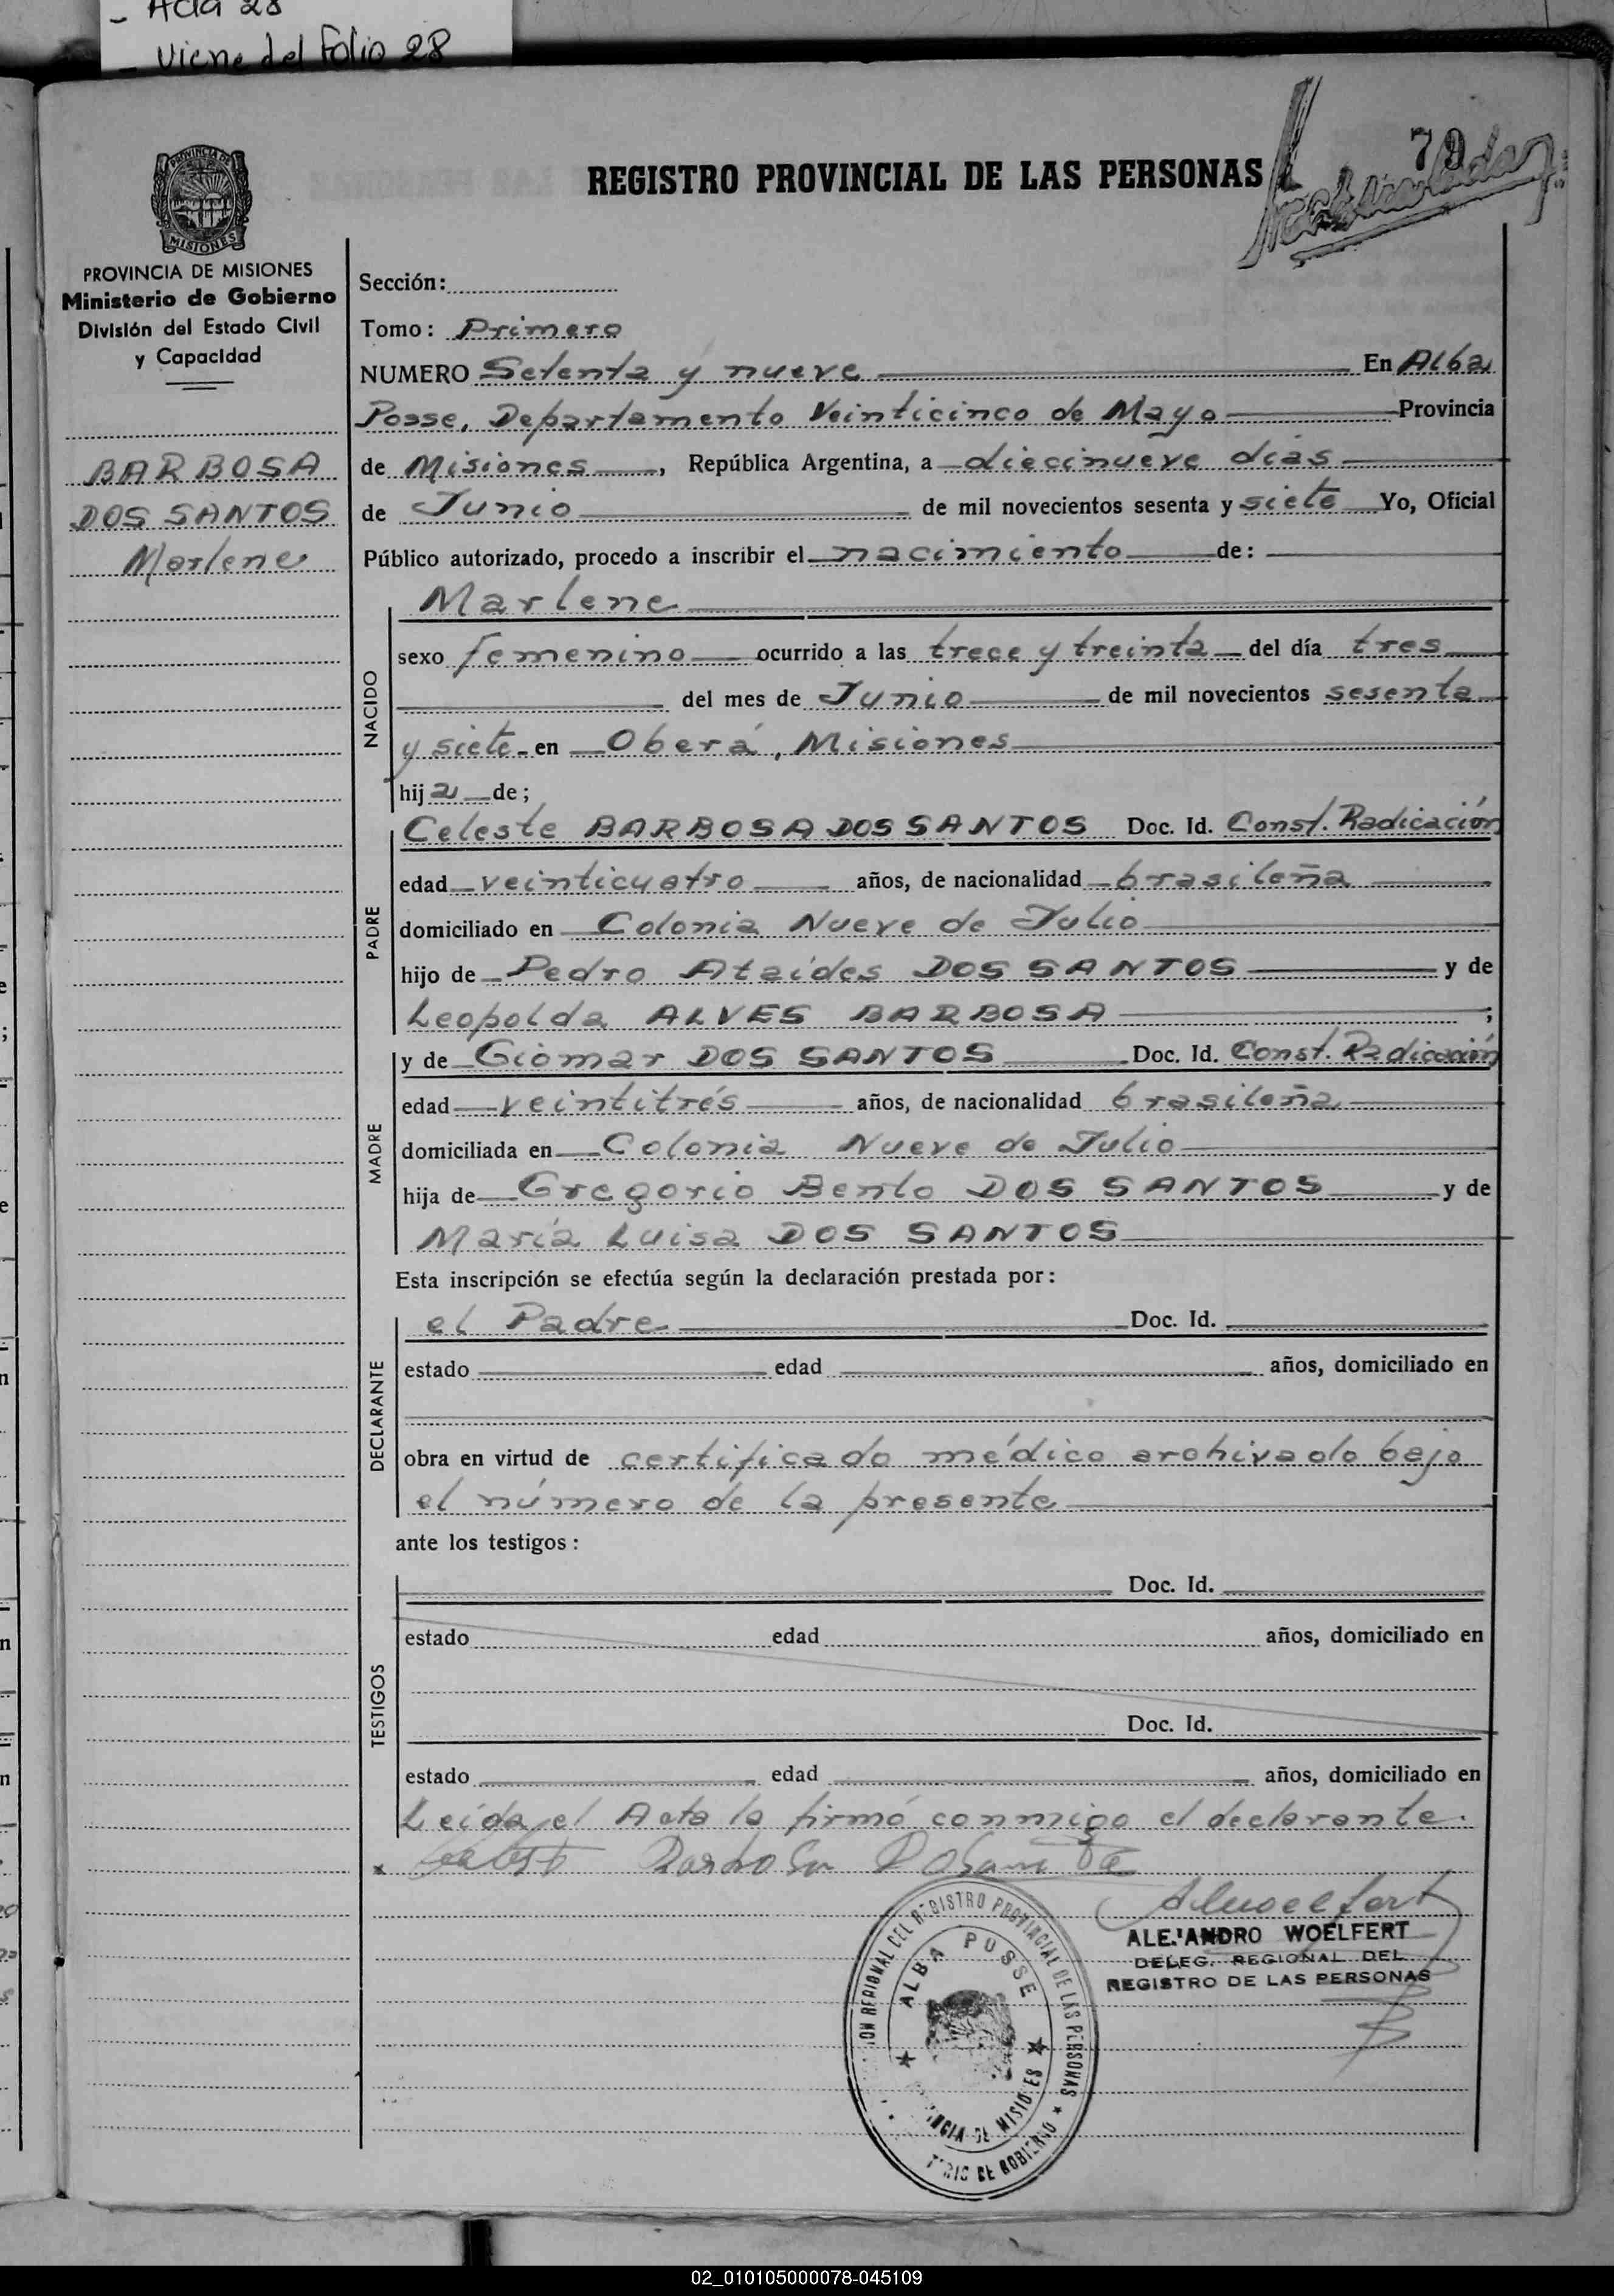 - Acta 28
- Viene del Folio 28
79
REGISTRO PROVINCIAL DE LAS PERSONAS
PROVINCIA DE
MISIONES
PROVINCIA DE MISIONES
Ministerio de Gobierno
División del Estado Civil
y Capacidad
BARBOSA
DOS SANTOS
Marlene
Sección:
Tomo: Primero
NUMERO Setenta y nueve En Alba
Posse, Departamento Veinticinco de Mayo Provincia
de Misiones, República Argentina, a diecinueve días
de Junio de mil novecientos sesenta y siete Yo, Oficial
Público autorizado, procedo a inscribir el nacimiento de:
NACIDO
Marlene
sexo femenino ocurrido a las trece y treinta del día tres
del mes de Junio de mil novecientos sesenta
y siete en Oberá, Misiones
hija de;
PADRE
Celeste BARBOSA DOS SANTOS Doc. Id. Const. Radicación
edad veinticuatro años, de nacionalidad brasileña
domiciliado en Colonia Nueve de Julio
hijo de Pedro Ataídes DOS SANTOS y de
Leopolda ALVES BARBOSA ;
MADRE
y de Giomar DOS SANTOS Doc. Id. Const. Radicación
edad veintitrés años, de nacionalidad brasileña
domiciliada en Colonia Nueve de Julio
hija de Gregorio Bento DOS SANTOS y de
María Luisa DOS SANTOS
Esta inscripción se efectúa según la declaración prestada por:
DECLARANTE
el Padre Doc. Id.
estado edad años, domiciliado en
obra en virtud de certificado médico archivado bajo
el número de la presente
ante los testigos:
TESTIGOS
Doc. Id.
estado edad años, domiciliado en
Doc. Id.
estado edad años, domiciliado en
Leída el Acta la firmó conmigo el declarante.
x Celest Barbosa Dosantos
AWoelfert
ALEJANDRO WOELFERT
DELEG. REGIONAL DEL
REGISTRO DE LAS PERSONAS
REGIONAL DEL REGISTRO PROVINCIAL DE LAS PERSONAS
ALBA POSSE
DE MISIONES
DE GOBIERNO
02_010105000078-045109